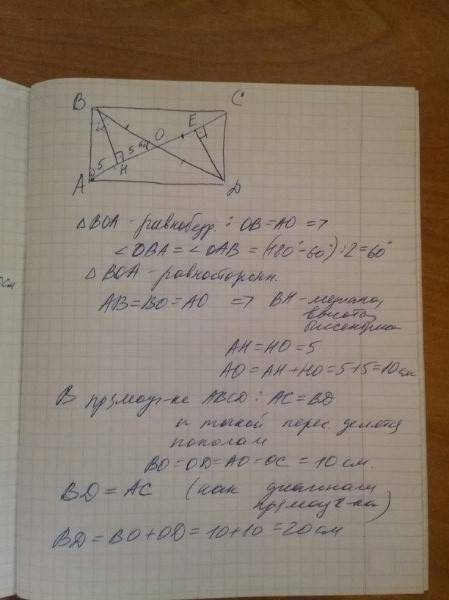 B C
E
O
5 5 см
A H D
△ BOA - равнобедр. : OB = AO =>
∠OBA = ∠OAB = (180° - 60°) : 2 = 60°
△ BOA - равносторонн.
AB = BO = AO => BH - медиана,
высота,
биссектриса
AH = HO = 5
AO = AH + HO = 5 + 5 = 10 см
В прямоуг-ке ABCD : AC = BD
и точкой перес. делятся
пополам
BO = OD = AO = OC = 10 см.
BD = AC (как диагонали
прямоуг-ка)
BD = BO + OD = 10 + 10 = 20 см